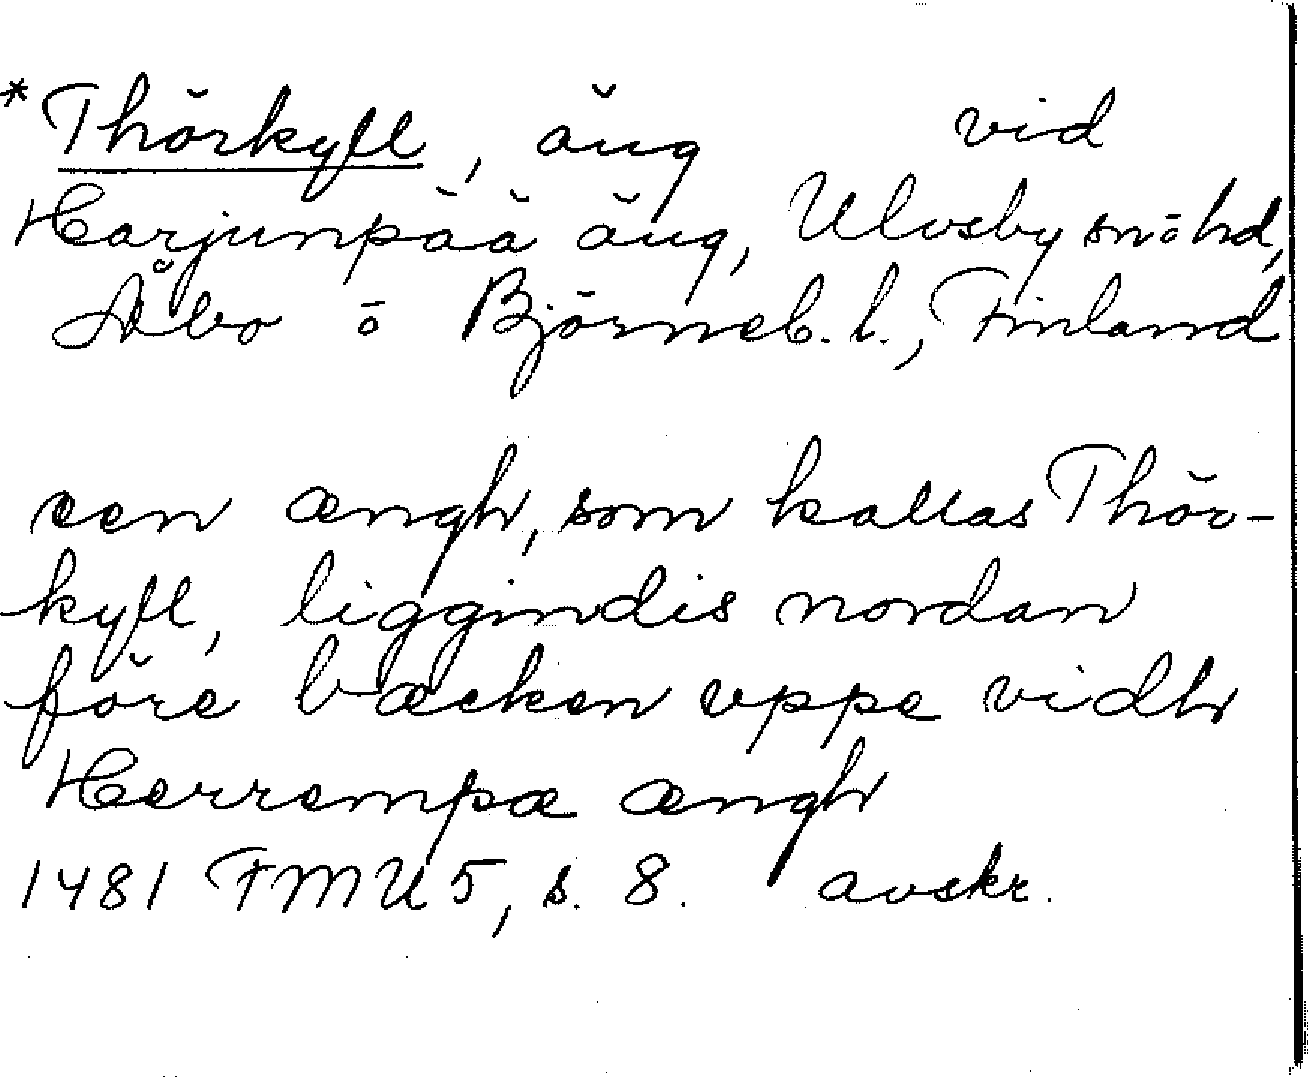 *Thörkyll, äng vid
Harjunpää äng, Ulvsby sn ö hd,
Åbo ö Björneb. l., Finland
een ængh, som kallas Thör-
kyll, liggindis nordan
före bæcken vppe vidh
Herrempæ ængh
1481 FMU 5, s. 8. avskr.